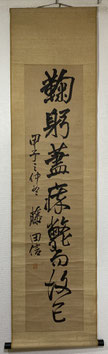 鞠躬盡瘁斃而後已
甲子之仲 藤田信